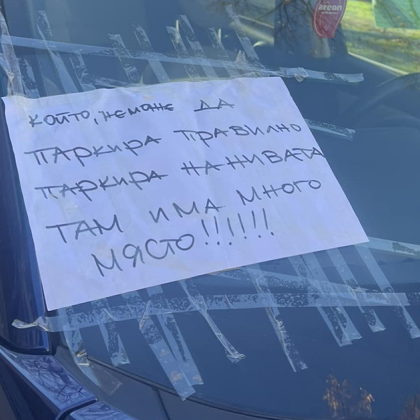 който, неможе да
паркира правилно
паркира на нивата
там има много
място!!!!!!!
areon